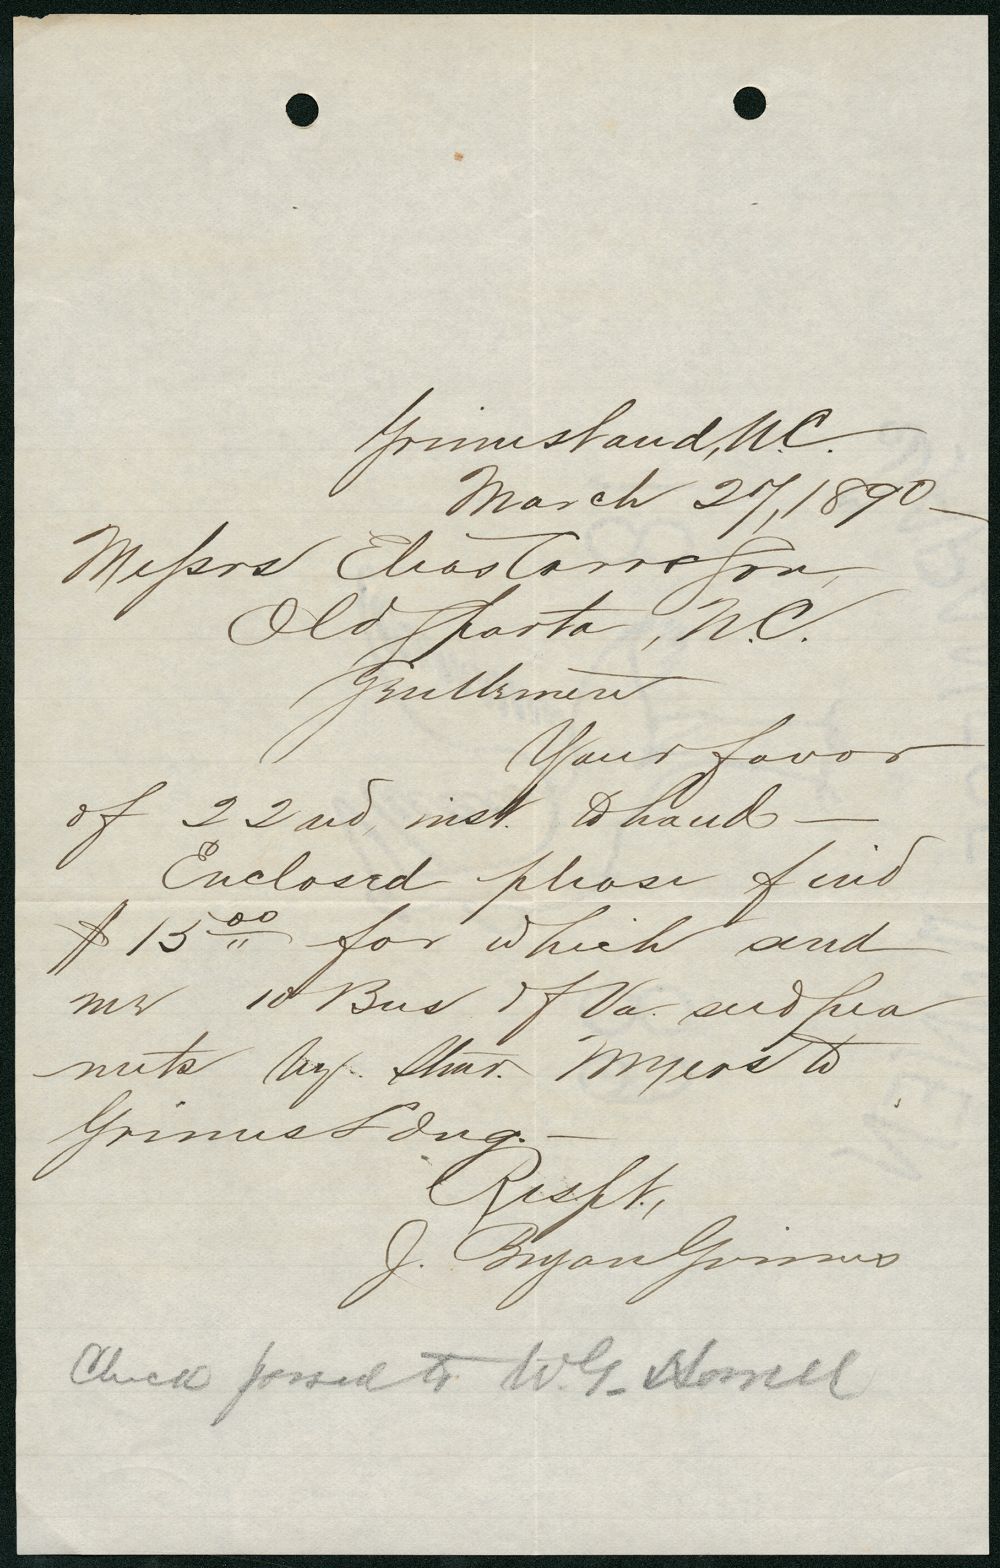 Grimesland, N.C.
March 27, 1890
Messrs Elias Carr & Son,
Old Sparta, N.C.
Gentlemen
Your favor
of 22nd, inst. to hand —
Enclosed please find
$15 00 for which send
me 10 Bus of Va. seed pea
nuts by Stmr. Myers to
Grimes Ldng. —
Respt.,
J. Bryan Grimes
Check passed to W. G.